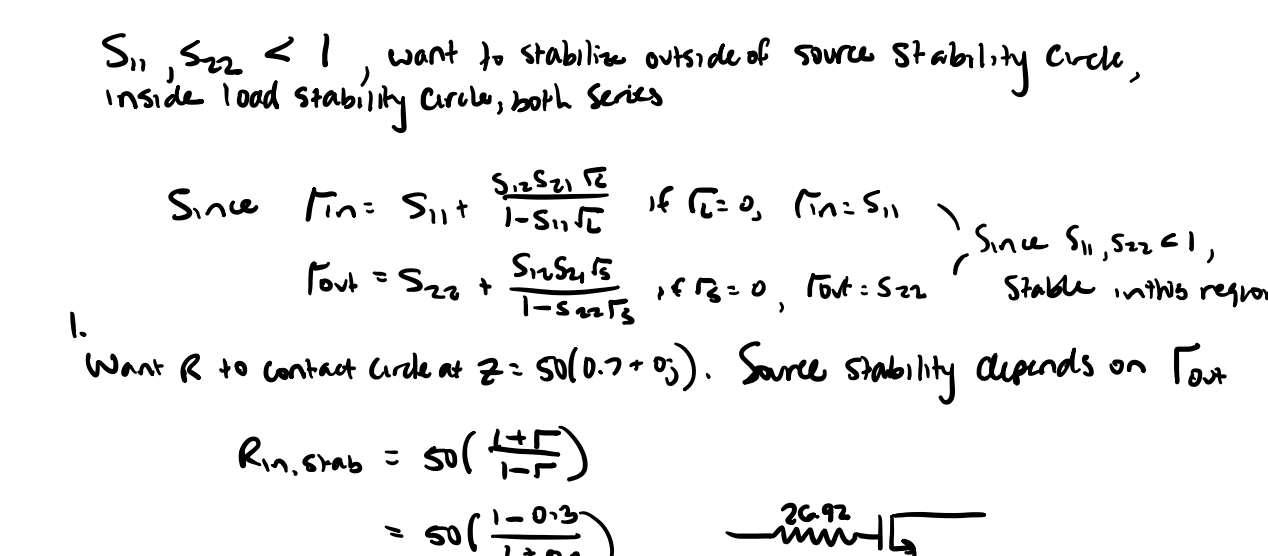 S₁₁, S₂₂ < 1, want to stabilize outside of source stability circle,
inside load stability circle, both series
Since Γin = S₁₁ + S₁₂S₂₁ΓL / 1-S₁₁ΓL if ΓL=0, Γin=S₁₁
Γout = S₂₂ + S₁₂S₂₁Γs / 1-S₂₂Γs, if Γs=0, Γout=S₂₂
Since S₁₁, S₂₂ < 1,
Stable in this region
1.
Want R to contact circle at Z = 50(0.7+0j). Source stability depends on Γout
Rin,stab = 50(1+Γ / 1-Γ)
= 50(1-0.3 /
26.92